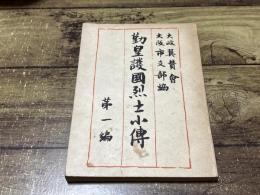 大政翼賛會
大阪市支部編
勤皇護國烈士小傳
第一編